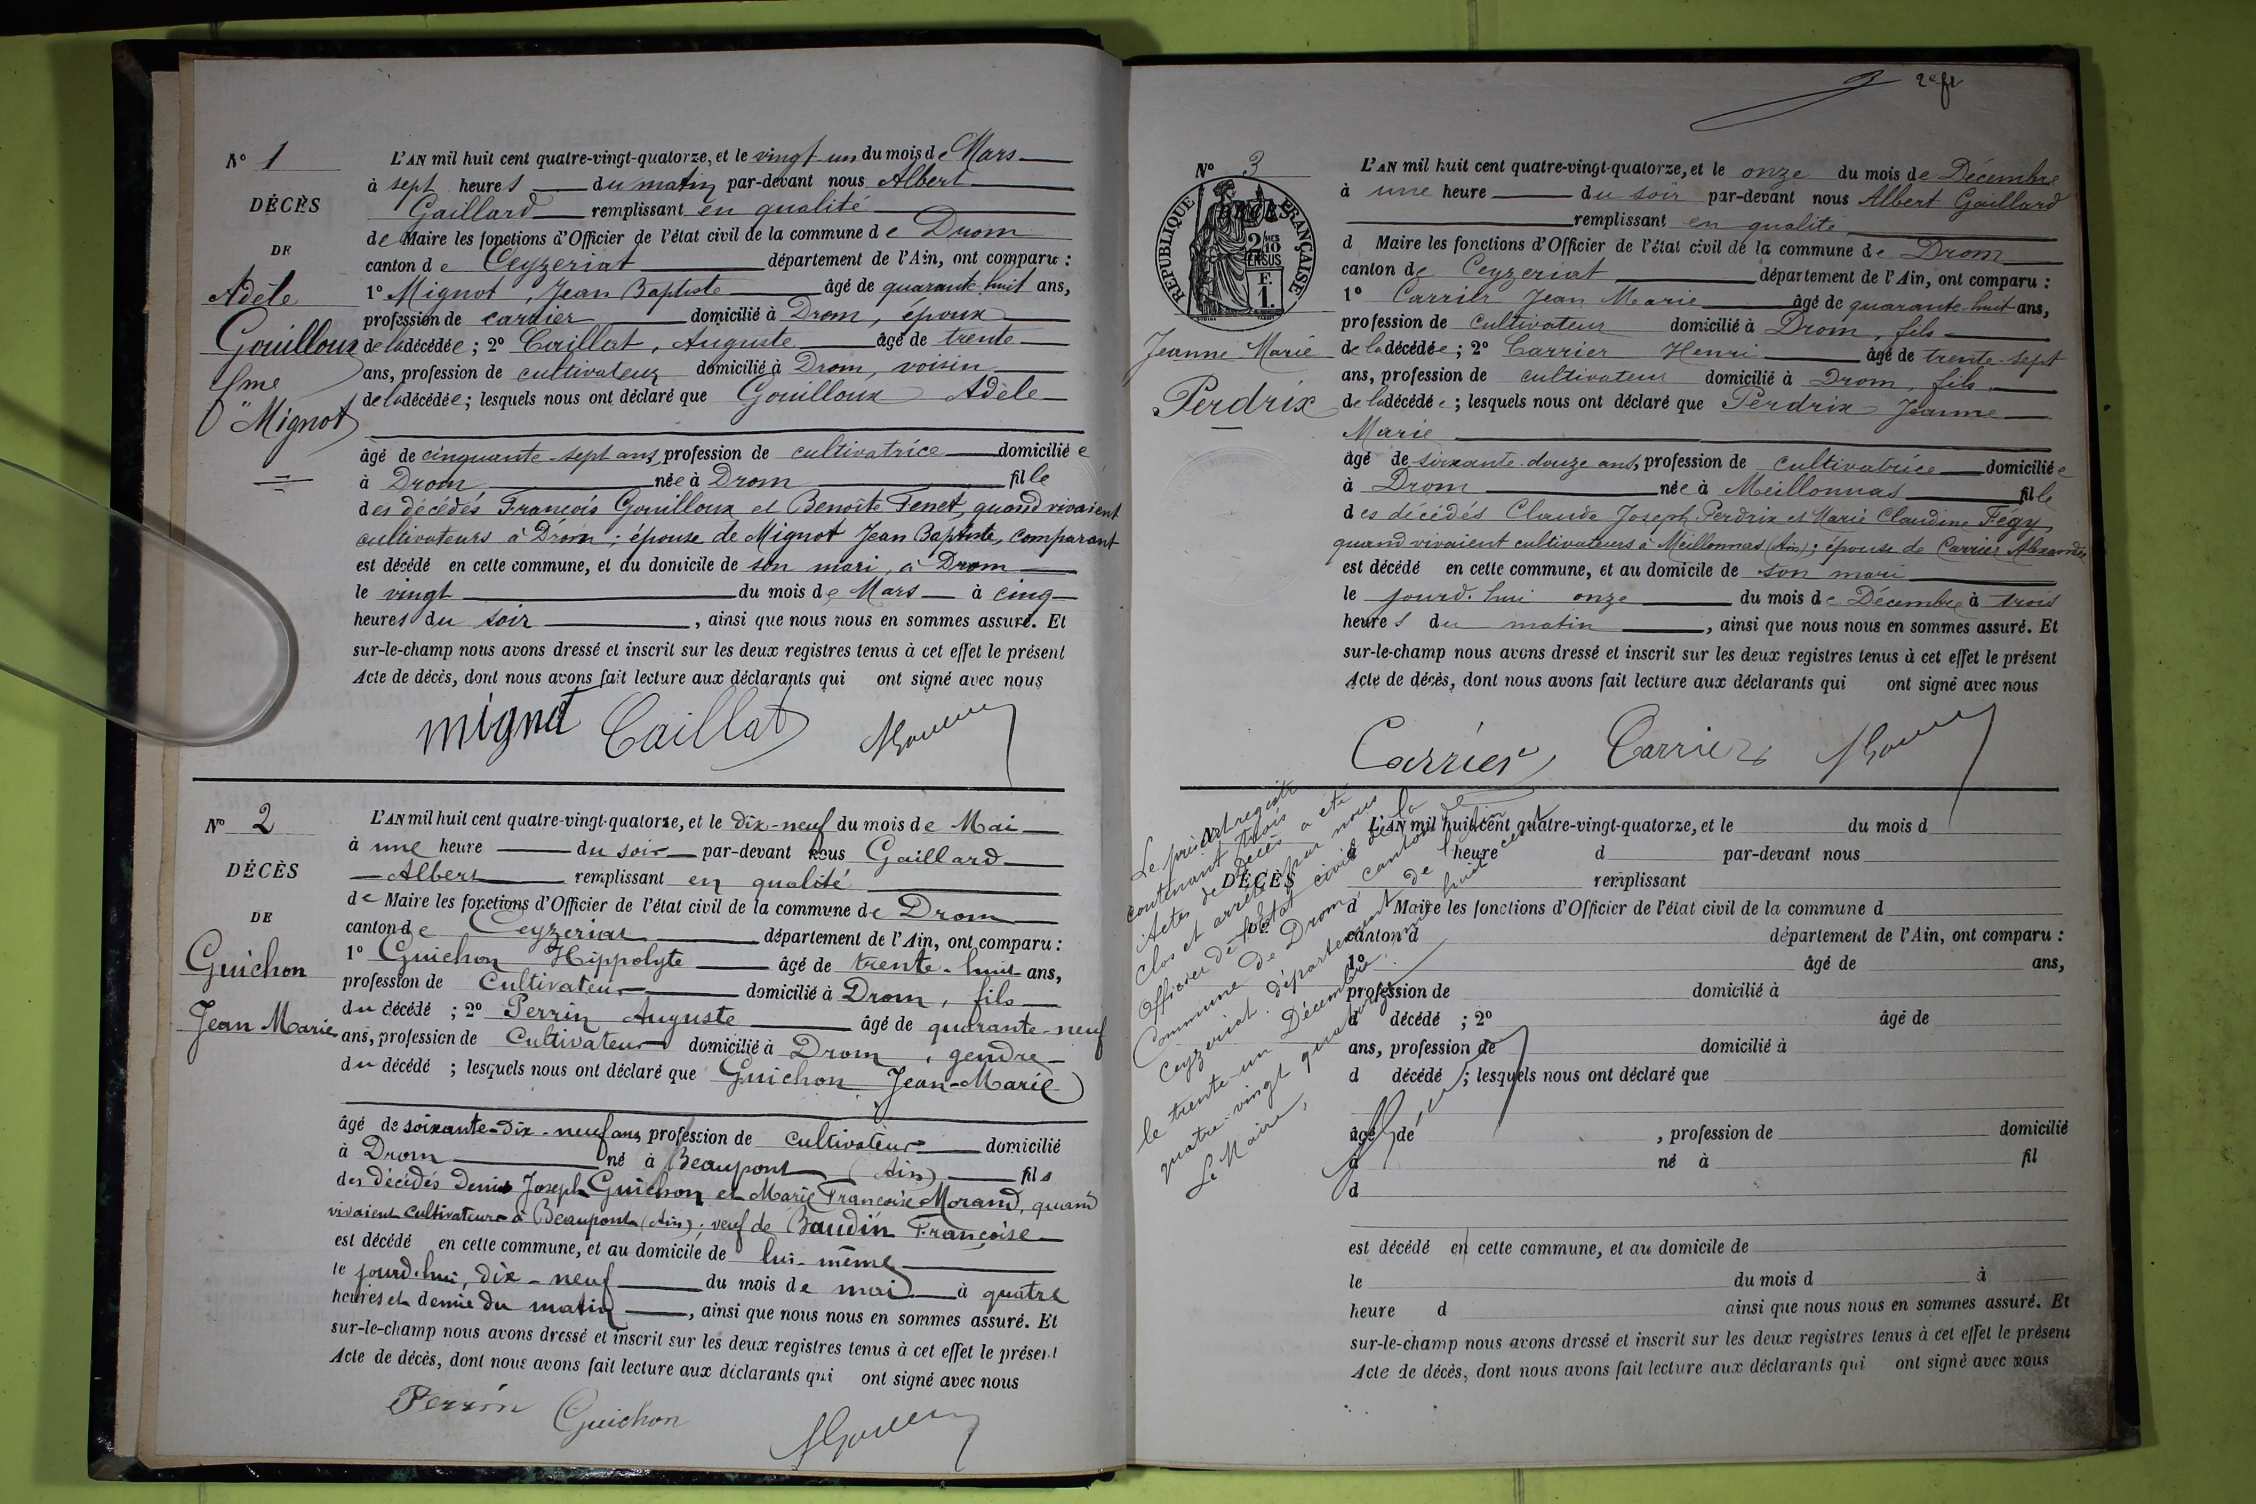 N° 1
DÉCÈS
DE
Adèle
Gouilloux
fme
Mignot
L'AN mil huit cent quatre-vingt-quatorze, et le vingt un du mois de Mars
à sept heures du matin par-devant nous Albert
Gaillard remplissant en qualité
de Maire les fonctions d'Officier de l'état civil de la commune de Drom
canton de Ceyzeriat département de l'Ain, ont comparu :
1° Mignot, Jean Baptiste âgé de quarante-huit ans,
profession de carrier domicilié à Drom, époux
de la décédée ; 2° Caillat, Auguste âgé de trente
ans, profession de cultivateur domicilié à Drom, voisin
de la décédée ; lesquels nous ont déclaré que Gouilloux Adèle
âgé de cinquante-sept ans, profession de cultivatrice domiciliée
à Drom née à Drom fille
des décédés François Gouilloux et Benoîte Tenet, quand vivaient
cultivateurs à Drom ; épouse de Mignot Jean Baptiste, comparant
est décédé en cette commune, et au domicile de son mari, à Drom
le vingt du mois de Mars à cinq
heures du soir, ainsi que nous nous en sommes assuré. Et
sur-le-champ nous avons dressé et inscrit sur les deux registres tenus à cet effet le présent
Acte de décès, dont nous avons fait lecture aux déclarants qui ont signé avec nous
Mignot Caillat
N° 2
DÉCÈS
DE
Guichon
Jean Marie
L'AN mil huit cent quatre-vingt-quatorze, et le dix-neuf du mois de Mai
à une heure du soir par-devant nous Gaillard
Albert remplissant en qualité
de Maire les fonctions d'Officier de l'état civil de la commune de Drom
canton de Ceyzeriat département de l'Ain, ont comparu :
1° Guichon Hippolyte âgé de trente-huit ans,
profession de Cultivateur domicilié à Drom, fils
du décédé ; 2° Perrin Auguste âgé de quarante-neuf
ans, profession de Cultivateur domicilié à Drom, gendre
du décédé ; lesquels nous ont déclaré que Guichon Jean-Marie
âgé de soixante-dix-neuf ans, profession de cultivateur domicilié
à Drom né à Beaupont (Ain) fils
des décédés Denis Joseph Guichon et Marie Françoise Morand, quand
vivaient cultivateurs à Beaupont (Ain) ; veuf de Baudin Françoise
est décédé en cette commune, et au domicile de lui-même
le jourd'hui, dix-neuf du mois de mai à quatre
heures et demie du matin, ainsi que nous nous en sommes assuré. Et
sur-le-champ nous avons dressé et inscrit sur les deux registres tenus à cet effet le présent
Acte de décès, dont nous avons fait lecture aux déclarants qui ont signé avec nous
Perrin Guichon
N° 3
DÉCÈS
REPUBLIQUE FRANÇAISE
2 MES
10
EN SUS
F.
1.
Jeanne Marie
Perdrix
L'AN mil huit cent quatre-vingt-quatorze, et le onze du mois de Décembre
à une heure du soir par-devant nous Albert Gaillard
remplissant en qualité
d Maire les fonctions d'Officier de l'état civil de la commune de Drom
canton de Ceyzeriat département de l'Ain, ont comparu :
1° Carrier Jean Marie âgé de quarante-huit ans,
profession de cultivateur domicilié à Drom, fils
de la décédée ; 2° Carrier Henri âgé de trente-sept
ans, profession de cultivateur domicilié à Drom, fils
de la décédée ; lesquels nous ont déclaré que Perdrix Jeanne
Marie
âgé de soixante-douze ans, profession de cultivatrice domiciliée
à Drom née à Meillonnas fille
des décédés Claude Joseph Perdrix et Marie Claudine Fégy
quand vivaient cultivateurs à Meillonnas (Ain) ; épouse de Carrier Alexandre
est décédé en cette commune, et au domicile de son mari
le jourd'hui onze du mois de Décembre à trois
heures du matin, ainsi que nous nous en sommes assuré. Et
sur-le-champ nous avons dressé et inscrit sur les deux registres tenus à cet effet le présent
Acte de décès, dont nous avons fait lecture aux déclarants qui ont signé avec nous
Carrier Carrier
Le présent registre
contenant trois
Actes de Décès a été
Clos et arrêté par nous
Officier de l'état civil de la
Commune de Drom canton de
Ceyzeriat, département de l'Ain
le trente-un Décembre mil huit cent
quatre-vingt quatorze.
Le Maire,
DÉCÈS
L'AN mil huit cent quatre-vingt-quatorze, et le du mois d
heure d par-devant nous
remplissant
d Maire les fonctions d'Officier de l'état civil de la commune d
canton d département de l'Ain, ont comparu :
1° âgé de ans,
profession de domicilié à
d décédé ; 2° âgé de
ans, profession de domicilié à
d décédé ; lesquels nous ont déclaré que
âgé de , profession de domicilié
à né à fil
d
est décédé en cette commune, et au domicile de
le du mois d à
heure d ainsi que nous nous en sommes assuré. Et
sur-le-champ nous avons dressé et inscrit sur les deux registres tenus à cet effet le présent
Acte de décès, dont nous avons fait lecture aux déclarants qui ont signé avec nous